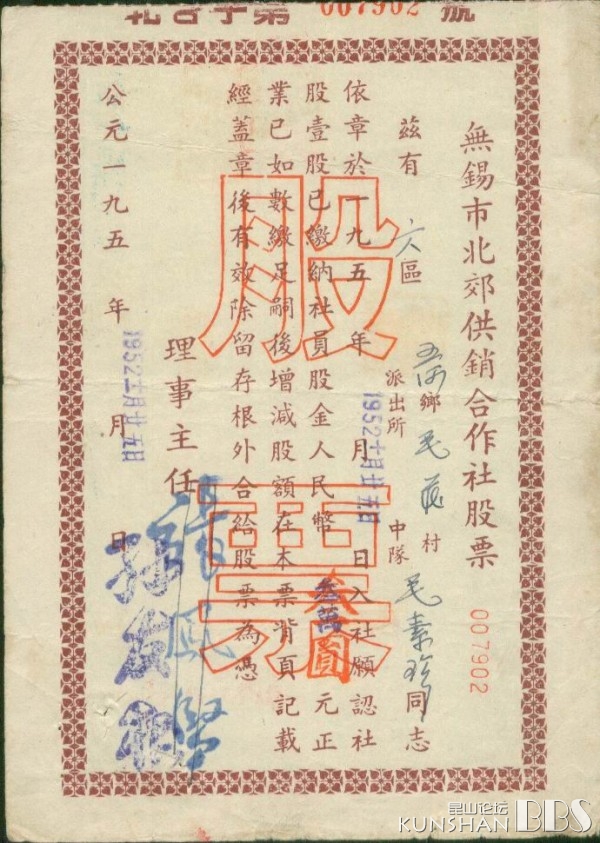 號 007902 第
無錫市北郊供銷合作社股票
007902
茲有 六區 鄉 毛 村 毛素珍同志
派出所 中隊
依章於一九五 年 月 日入社願認社
1952 十月廿五日
股壹股已繳納社員股金人民幣 叁圓 元正
業已如數繳足嗣後增減股額在本票背頁記載
經蓋章後有效除留存根外合給股票為憑
股票
理事主任
公元一九五 年 月 日
昆山论坛
KUNSHAN BBS